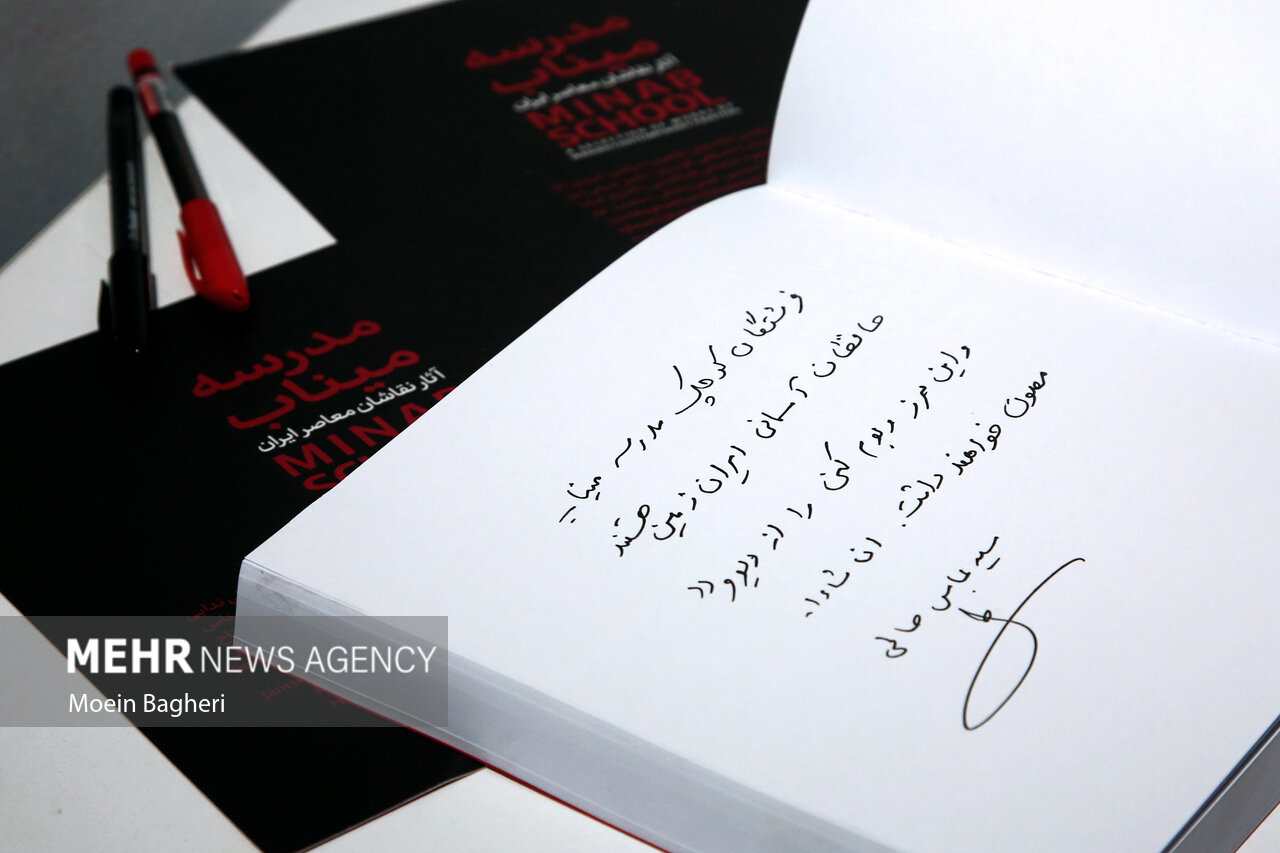 مدرسه
میناب
آثار نقاشان معاصر ایران
MINAB
SCHOOL
مدرسه
میناب
آثار نقاشان معاصر ایران
MINA
فرشتگان کوچک مدرسه میناب
حافظان آسمانی ایران زمین هستند
و این مرز و بوم کهن را از دیو و دد
مصون خواهند داشت. ان شاءا...
سید عباس صالحی
MEHR NEWS AGENCY
Moein Bagheri